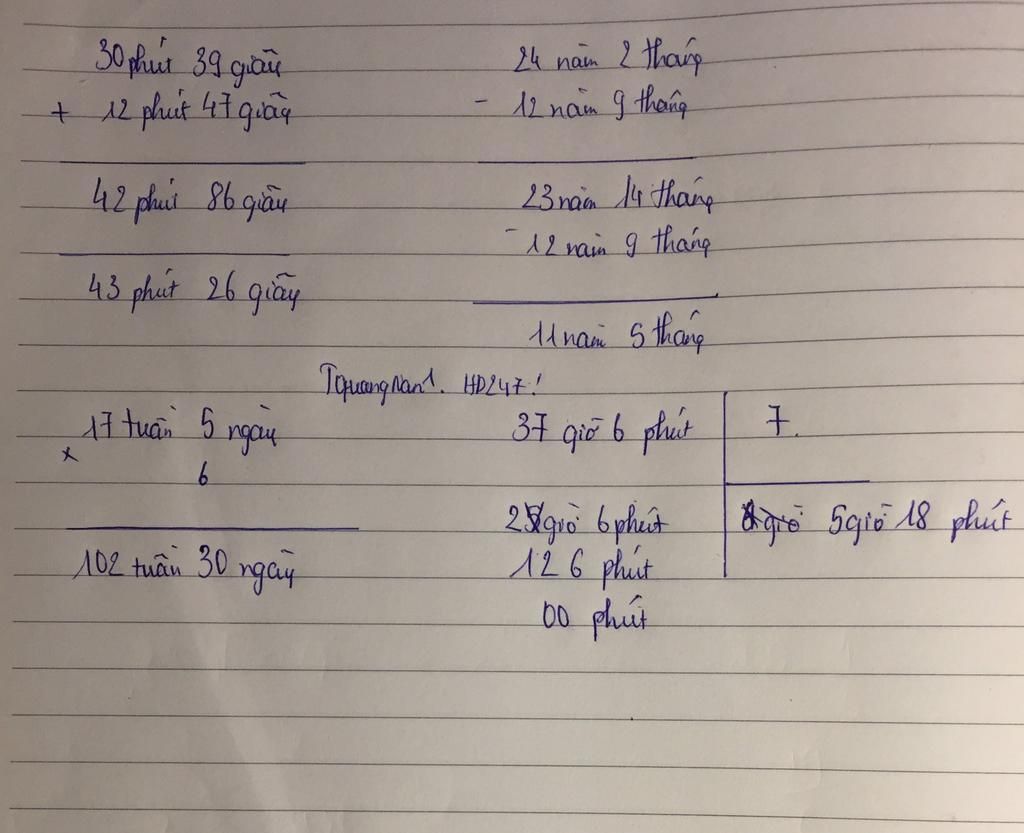 30 phút 39 giây
+ 12 phút 47 giây
42 phút 86 giây
43 phút 26 giây
24 năm 2 tháng
- 12 năm 9 tháng
23 năm 14 tháng
- 12 năm 9 tháng
11 năm 5 tháng
TquangNan1. HD247!
17 tuần 5 ngày
x 6
102 tuần 30 ngày
37 giờ 6 phút 7.
2 giờ 6 phút 5 giờ 18 phút
126 phút
00 phút